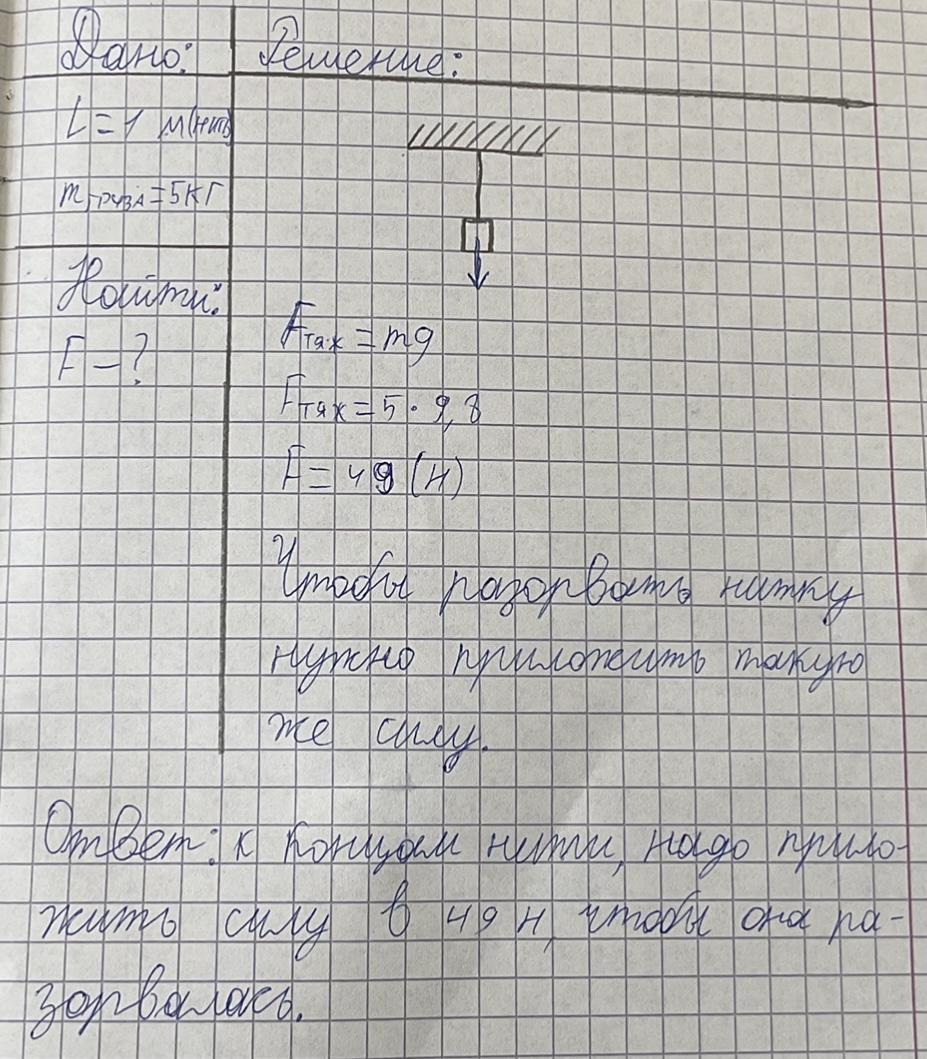 Дано:
Решение:
L = 1 м(нить)
m груза = 5 кг
Найти:
F - ?
Fтяж = mg
Fтяж = 5 · 9,8
F = 49 (Н)
Чтобы разорвать нитку
нужно приложить такую
же силу.
Ответ: к концам нити, надо прило-
жить силу в 49 Н, чтобы она ра-
зорвалась.